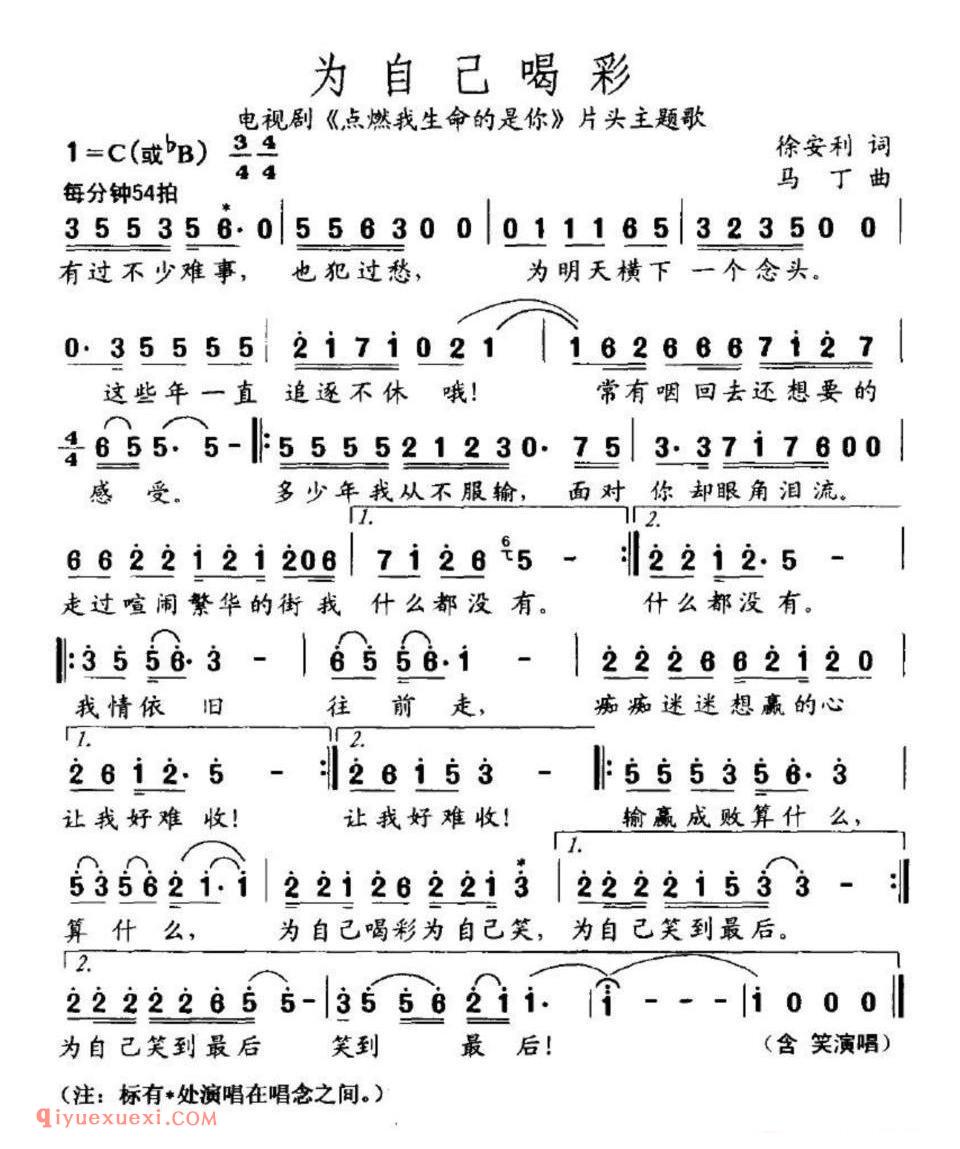 为自己喝彩
电视剧《点燃我生命的是你》片头主题歌
1=C(或♭B) 3/4 4/4
徐安利 词
每分钟54拍
马 丁 曲
3 5 5 3 5 6· 0 | 5 5 6 3 0 0 | 0 1 1 1 6 5 | 3 2 3 5 0 0 |
有过不少难事, 也犯过愁, 为明天横下 一个念头。
0· 3 5 5 5 5 5 | 2 1 7 1 0 2 1 | 1 6 2 6 6 6 7 1 2 7 |
这些年一直 追逐不休 哦! 常有咽回去还想要的
4/4 6 5 5· 5 - |: 5 5 5 5 2 1 2 3 0· 7 5 | 3· 3 7 1 7 6 0 0 |
感 受。 多少年我从不服输, 面对 你却眼角泪流。
1. 2.
6 6 2 2 1 2 1 2 0 6 | 7 1 2 6 6 5 - :| 2 2 1 2· 5 - |
走过喧闹繁华的街我 什么都没有。 什么都没有。
|: 3 5 5 6· 3 - | 6 5 5 6· 1 - | 2 2 2 6 6 2 1 2 0 |
我情依旧 往前走, 痴痴迷迷想赢的心
1. 2.
2 6 1 2· 5 - :| 2 6 1 5 3 - |: 5 5 5 3 5 6· 3 |
让我好难收! 让我好难收! 输赢成败算什么,
1.
5 3 5 6 2 1· 1 | 2 2 1 2 6 2 2 1 3 | 2 2 2 2 1 5 3 3 - :|
算什么, 为自己喝彩为自己笑, 为自己笑到最后。
2.
2 2 2 2 2 6 5 5 - | 3 5 5 6 2 1 1· | 1 - - - | 1 0 0 0 ||
为自己笑到最后 笑到 最 后! (含 笑演唱)
(注: 标有*处演唱在唱念之间。)
qiyuexuexi.com